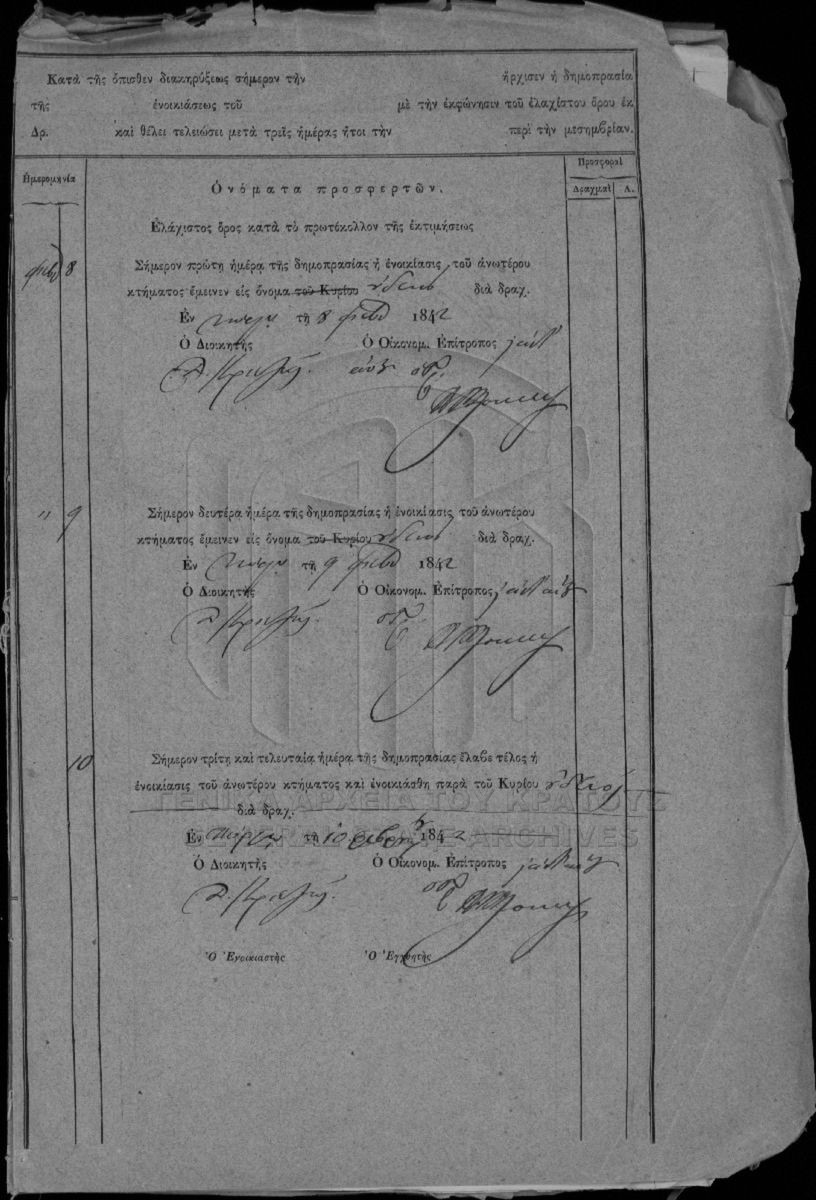 Κατὰ τῆς ὄπισθεν διακηρύξεως σήμερον τὴν ἤρχισεν ἡ δημοπρασία
τῆς ἐνοικιάσεως τοῦ μὲ τὴν ἐκφώνησιν τοῦ ἐλαχίστου ὅρου ἐκ
Δρ. καὶ θέλει τελειώσει μετὰ τρεῖς ἡμέρας ἤτοι τὴν περὶ τὴν μεσημβρίαν.
Ἡμερομηνία
Ὀνόματα προσφερτῶν.
Προσφοραὶ
Δραχμαὶ Λ.
Ἐλάχιστος ὅρος κατὰ τὸ πρωτόκολλον τῆς ἐκτιμήσεως
φεβ 8
Σήμερον πρώτη ἡμέρα τῆς δημοπρασίας ἡ ἐνοικίασις τοῦ ἀνωτέρου
κτήματος ἔμεινεν εἰς ὄνομα τοῦ Κυρίου διὰ δραχ.
Ἐν τῇ 8 φεβ 1842
Ὁ Διοικητὴς Ὁ Οἰκονομ. Ἐπίτροπος
" 9
Σήμερον δευτέρα ἡμέρα τῆς δημοπρασίας ἡ ἐνοικίασις τοῦ ἀνωτέρου
κτήματος ἔμεινεν εἰς ὄνομα τοῦ Κυρίου διὰ δραχ.
Ἐν τῇ 9 φεβ 1842
Ὁ Διοικητὴς Ὁ Οἰκονομ. Ἐπίτροπος
10
Σήμερον τρίτη καὶ τελευταία ἡμέρα τῆς δημοπρασίας ἔλαβε τέλος ἡ
ἐνοικίασις τοῦ ἀνωτέρου κτήματος καὶ ἐνοικιάσθη παρὰ τοῦ Κυρίου
ΓΕΝΙΚΑ ΑΡΧΕΙΑ ΤΟΥ ΚΡΑΤΟΥΣ
διὰ δραχ.
Ἐν τῇ 10 1842
ARCHIVES
Ὁ Διοικητὴς Ὁ Οἰκονομ. Ἐπίτροπος
Ὁ Ἐνοικιαστὴς Ὁ Ἐγγυητὴς